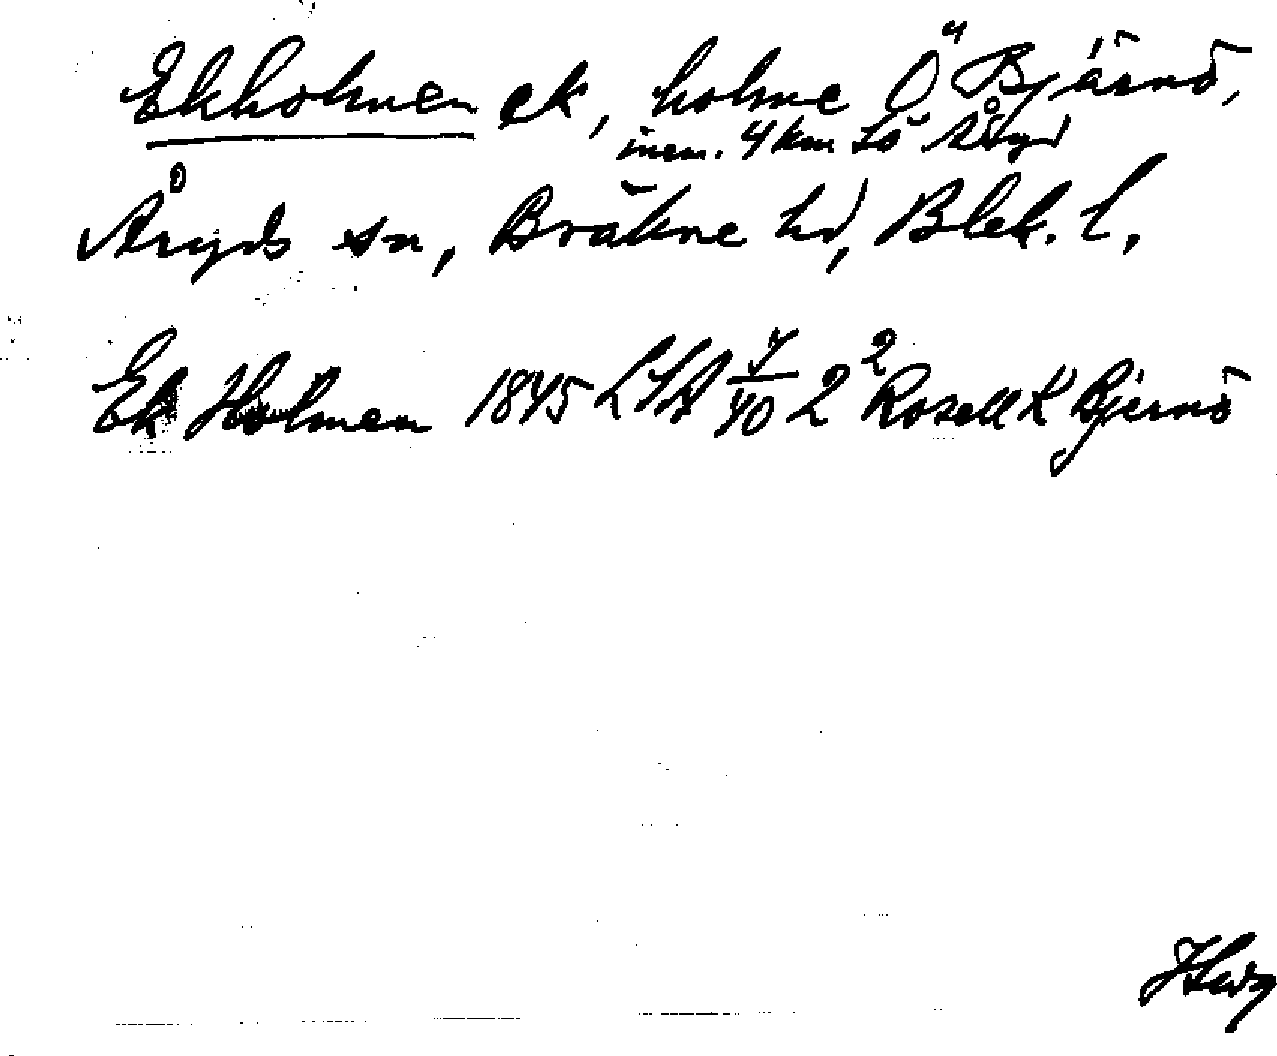 Ekholmen ek, holme Ö Bjärnö,
inem. 4 km SÖ Åryd
Åryds sn, Bräkne hd, Blek. l.
Ek Holmen 1845 LSA 7/40 2² Rosell K Bjernö